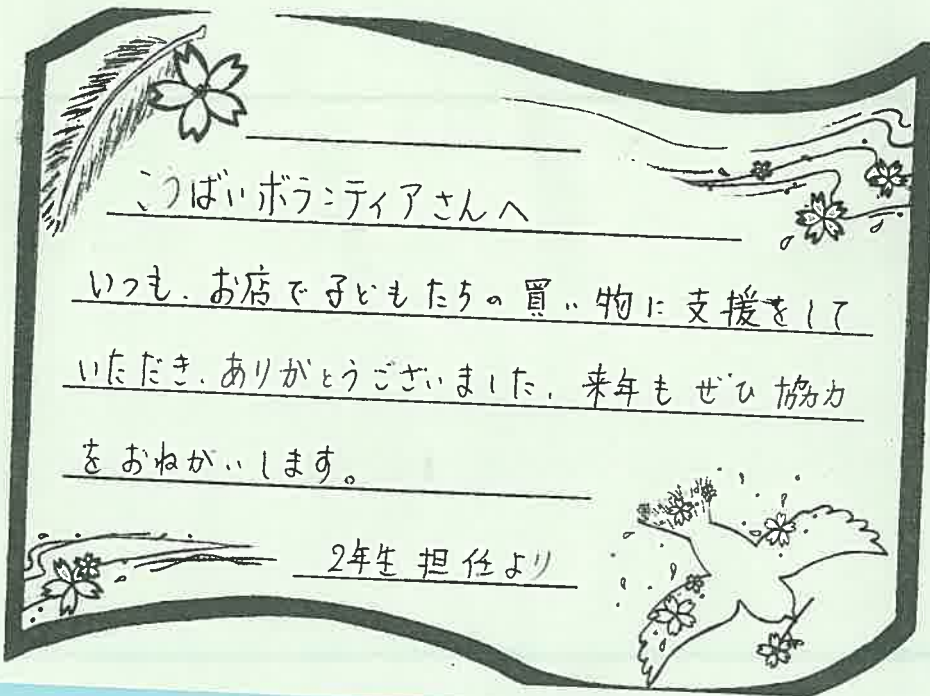 こうばいボランティアさんへ
いつも、お店で子どもたちの買い物に支援をして
いただき、ありがとうございました。来年もぜひ協力
をおねがいします。
2年生担任より